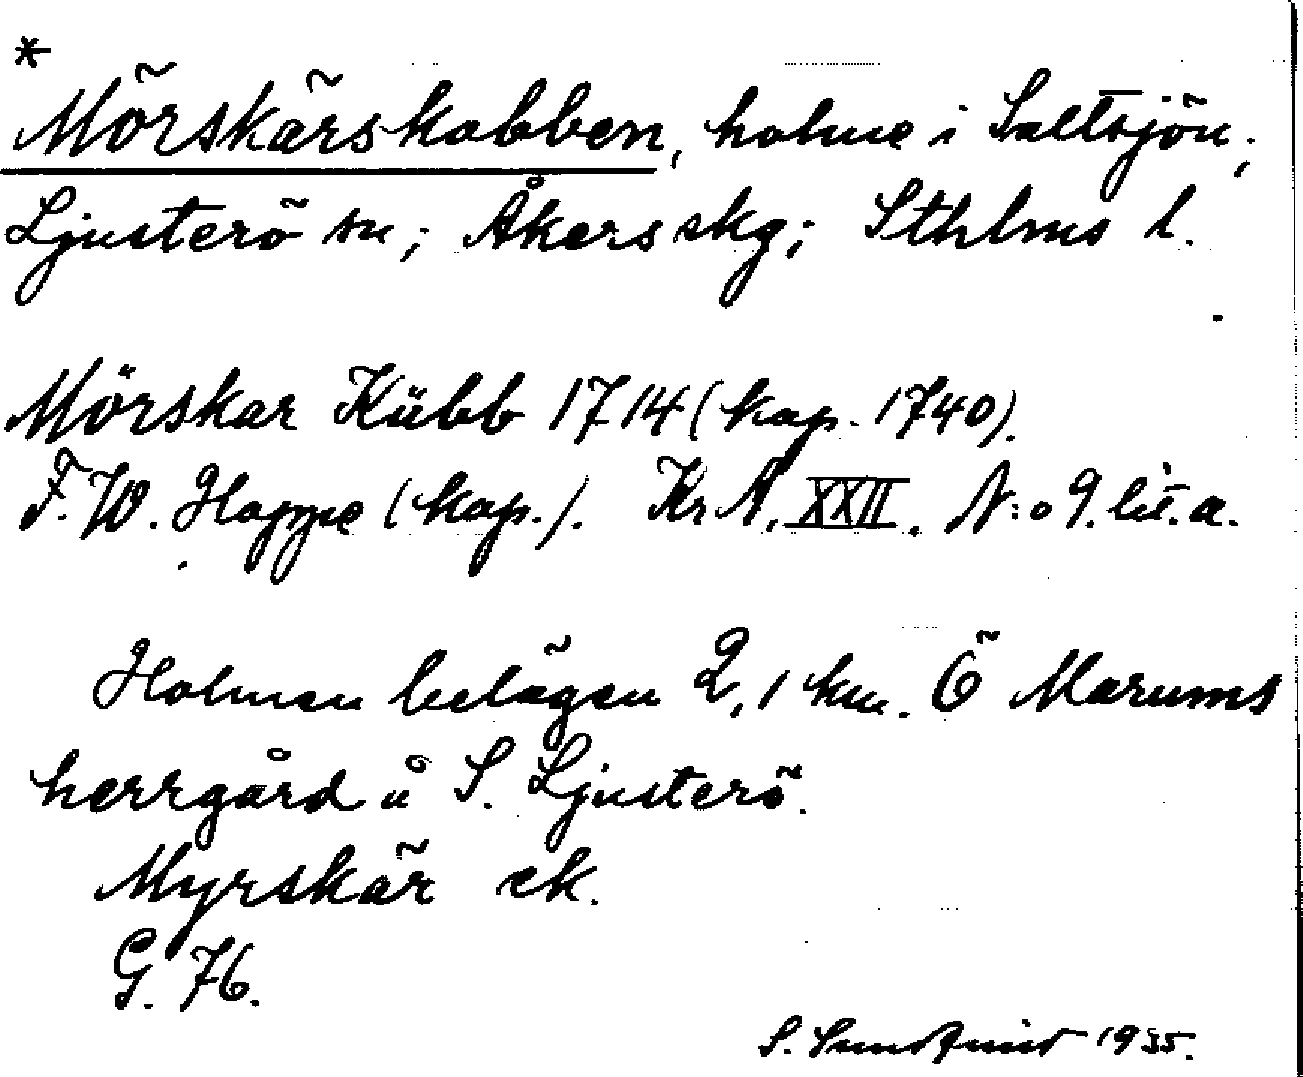 *
Mörskärskobben, holme i Saltsjön;
Ljusterö sn; Åkers skg; Sthlms l.
Mörskar Kübb 1714 (kop. 1740).
F. W. Hoppe (kop.). Kr A. XXII. N:o 9. lit. a.
Holmen belägen 2,1 km. Ö Marums
herrgård å S. Ljusterö.
Myrskär ek.
G. 76.
S. 1935.